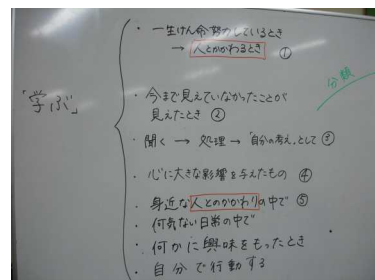 「学ぶ」
・一生けん命努力しているとき
→ 人とかかわるとき ①
分類
・今まで見えていなかったことが
見えたとき ②
・聞く → 処理 → 「自分の考え」として ③
・心に大きな影響を与えたもの ④
・身近な人とのかかわりの中で ⑤
・何気ない日常の中で
・何かに興味をもったとき
・自分で行動する